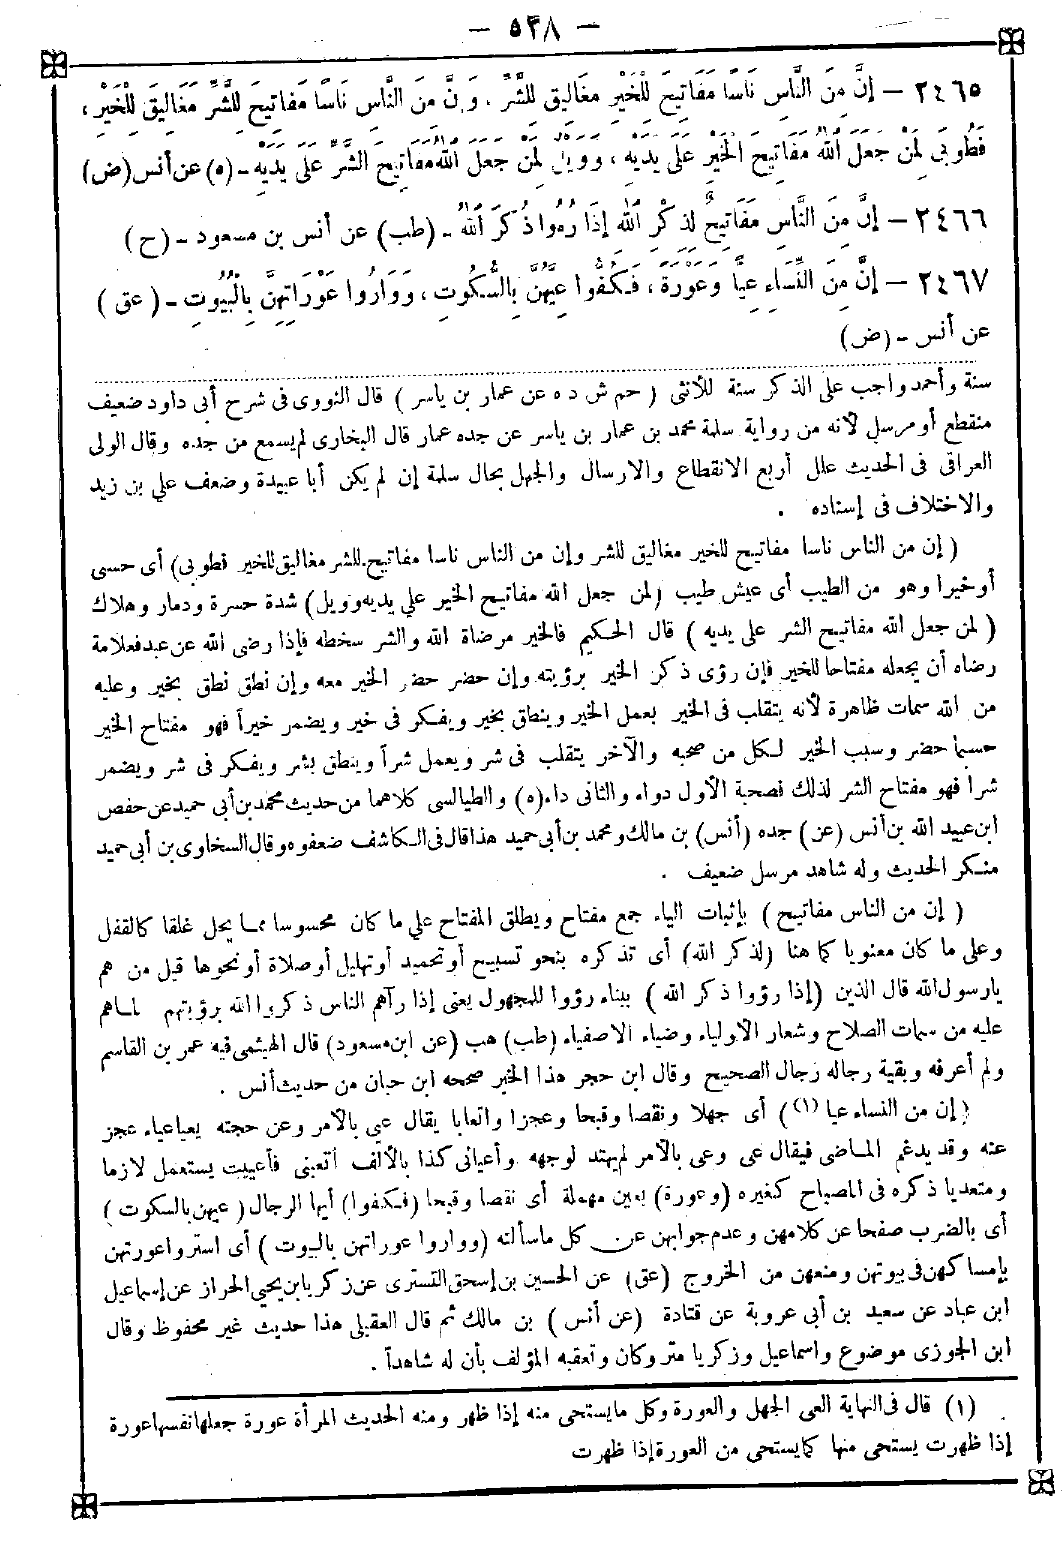 — ٥٣٨ —
٢٤٦٥ – إِنَّ مِنَ النَّاسِ نَاسًا مَفَاتِيحَ لِلْخَيْرِ مَغَالِيقَ لِلشَّرِّ ، وَإِنَّ مِنَ النَّاسِ نَاسًا مَفَاتِيحَ لِلشَّرِّ مَغَالِيقَ لِلْخَيْرِ ،
فَطُوبَى لِمَنْ جَعَلَ اللهُ مَفَاتِيحَ الْخَيْرِ عَلَى يَدَيْهِ ، وَوَيْلٌ لِمَنْ جَعَلَ اللهُ مَفَاتِيحَ الشَّرِّ عَلَى يَدَيْهِ – (ه) عن أنس (ض)
٢٤٦٦ – إِنَّ مِنَ النَّاسِ مَفَاتِيحَ لِذِكْرِ اللهِ إِذَا رُءُوا ذُكِرَ اللهُ – (طب) عن أنس بن مسعود – (ح)
٢٤٦٧ – إِنَّ مِنَ النِّسَاءِ عِيًّا وَعَوْرَةً ، فَكُفُّوا عِيَّهُنَّ بِالسُّكُوتِ ، وَوَارُوا عَوْرَاتِهِنَّ بِالْبُيُوتِ – (عق)
عن أنس – (ض)
سنة وأحمد واجب على الذكر سنة للأنثى (حم ش د ه عن عمار بن ياسر) قال النووى فى شرح أبى داود ضعيف
منقطع أو مرسل لأنه من رواية سلمة محمد بن عمار بن ياسر عن جده عمار قال البخارى لم يسمع من جده وقال الولى
العراقى فى الحديث علل أربع الانقطاع والارسال والجهل بحال سلمة إن لم يكن أبا عبيدة وضعف على بن زيد
والاختلاف فى إسناده .
(إن من الناس ناسا مفاتيح للخير مغاليق للشر وإن من الناس ناسا مفاتيح للشر مغاليق للخير فطوبى) أى حسنى
أو خيرا وهو من الطيب أى عيش طيب (لمن جعل الله مفاتيح الخير على يديه وويل) شدة حسرة ودمار وهلاك
(لمن جعل الله مفاتيح الشر على يديه) قال الحكيم فالخير مرضاة الله والشر سخطه فإذا رضى الله عن عبد فعلامة
رضاه أن يجعله مفتاحا للخير فإن رؤى ذكر الخير برؤيته وإن حضر حضر الخير معه وإن نطق نطق بخير وعليه
من الله سمات ظاهرة لأنه يتقلب فى الخير بعمل الخير وينطق بخير ويفكر فى خير ويضمر خيراً فهو مفتاح الخير
حسبما حضر وسبب الخير لكل من صحبه والآخر يتقلب فى شر ويعمل شراً وينطق بشر ويفكر فى شر ويضمر
شرا فهو مفتاح الشر لذلك فصحبة الأول دواء والثانى داء (ه) والطيالسى كلاهما من حديث محمد بن أبى حميد عن حفص
ابن عبيد الله بن أنس (عن) جده (أنس) بن مالك ومحمد بن أبى حميد هذا قال فى الكاشف ضعفوه وقال السخاوى بن أبى حميد
منكر الحديث وله شاهد مرسل ضعيف .
(إن من الناس مفاتيح) بإثبات الياء جمع مفتاح ويطلق المفتاح على ما كان محسوسا مما يحل غلقا كالقفل
وعلى ما كان معنويا كما هنا (لذكر الله) أى تذكره بنحو تسبيح أو تحميد أو تهليل أو صلاة أو نحوها قيل من هم
يارسول الله قال الذين (إذا رؤوا ذكر الله) ببناء رؤوا للمجهول يعنى إذا رآهم الناس ذكروا الله برؤيتهم لماهم
عليه من سمات الصلاح وشعار الأولياء وضياء الاصفياء (طب) هب (عن ابن مسعود) قال الهيثمى فيه عمر بن القاسم
ولم أعرفه وبقية رجاله رجال الصحيح وقال ابن حجر هذا الخبر صححه ابن حبان من حديث أنس .
(إن من النساء عيا (١)) أى جهلا ونقصا وقبحا وعجزا واتعابا يقال عيى بالأمر وعن حجته يعيا عياء عجز
عنه وقد يدغم الماضى فيقال عى وعى بالأمر لم يهتد لوجهه وأعيانى كذا بالألف أتعبنى فأعييت يستعمل لازما
ومتعديا ذكره فى المصباح كغيره (وعورة) بعين مهملة أى نقصا وقبحا (فكفوا) أيها الرجال (عيهن بالسكوت)
أى بالضرب صفحا عن كلامهن وعدم جوابهن عن كل ماسألنه (وواروا عوراتهن بالبيوت) أى استروا عورتهن
بإمساكهن فى بيوتهن ومنعهن من الخروج (عق) عن الحسين بن إسحق التسترى عن زكريا بن يحيى الخراز عن إسماعيل
ابن عباد عن سعيد بن أبى عروبة عن قتادة (عن أنس) بن مالك ثم قال العقيلى هذا حديث غير محفوظ وقال
ابن الجوزى موضوع واسماعيل وزكريا متروكان وتعقبه المؤلف بأن له شاهداً .
(١) قال فى النهاية العى الجهل والعورة وكل مايستحى منه إذا ظهر ومنه الحديث المرأة عورة جعلها نفسها عورة
إذا ظهرت يستحى منها كما يستحى من العورة إذا ظهرت